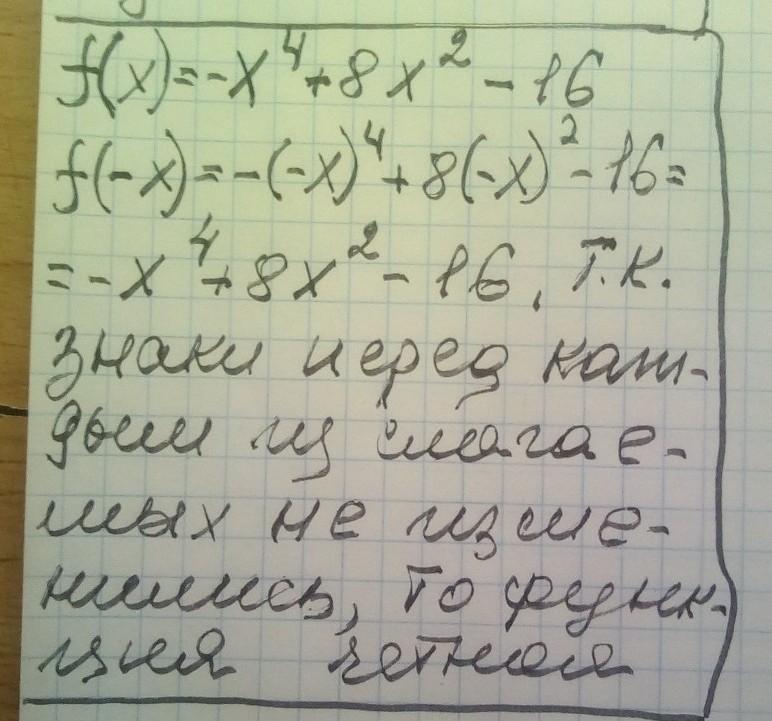 f(x)=-x⁴+8x²-16
f(-x)=-(-x)⁴+8(-x)²-16=
=-x⁴+8x²-16, т.к.
знаки перед каж-
дым из слагае-
мых не изме-
нились, то функ-
ция четная